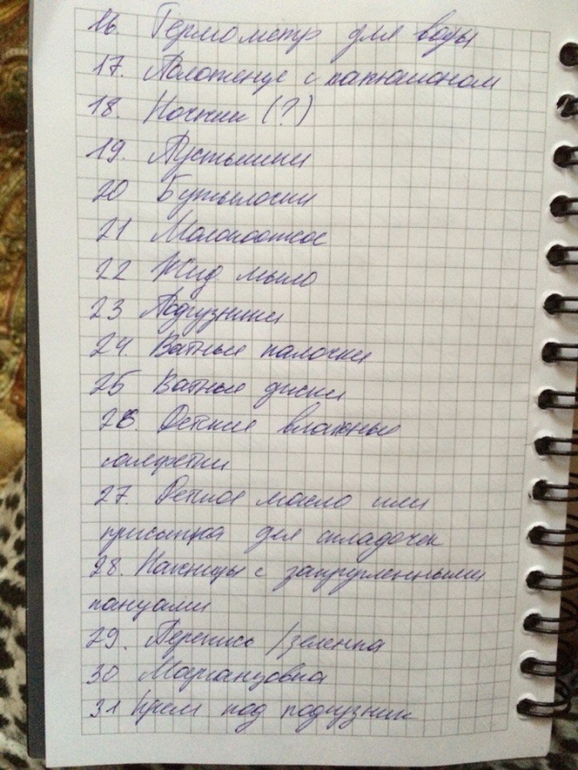 16. Термометр для воды
17. Полотенце с капюшоном
18. Ночник (?)
19. Пустышки
20 Бутылочки
21 Молокоотсос
22 Жид мыло
23 Подгузники
24 Ватные палочки
25 Ватные диски
26 Детские влажные
салфетки
27. Детское масло или
присыпка для складочек
28. Ножницы с закругленными
концами
29. Перекись/зеленка
30 Марганцовка
31 Крем под подгузник